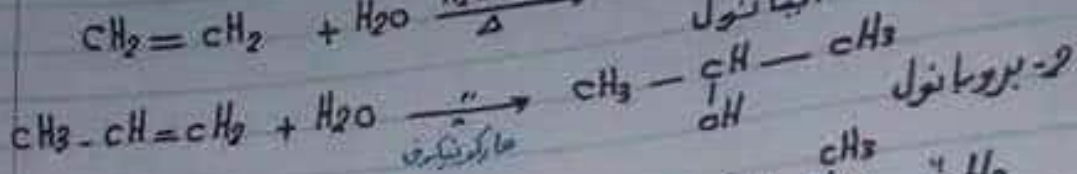 CH2 = CH2 + H2O Δ
CH3 - CH = CH2 + H2O " ماركونيكوف CH3 - CH - CH3 2- بروبانول
OH
CH3